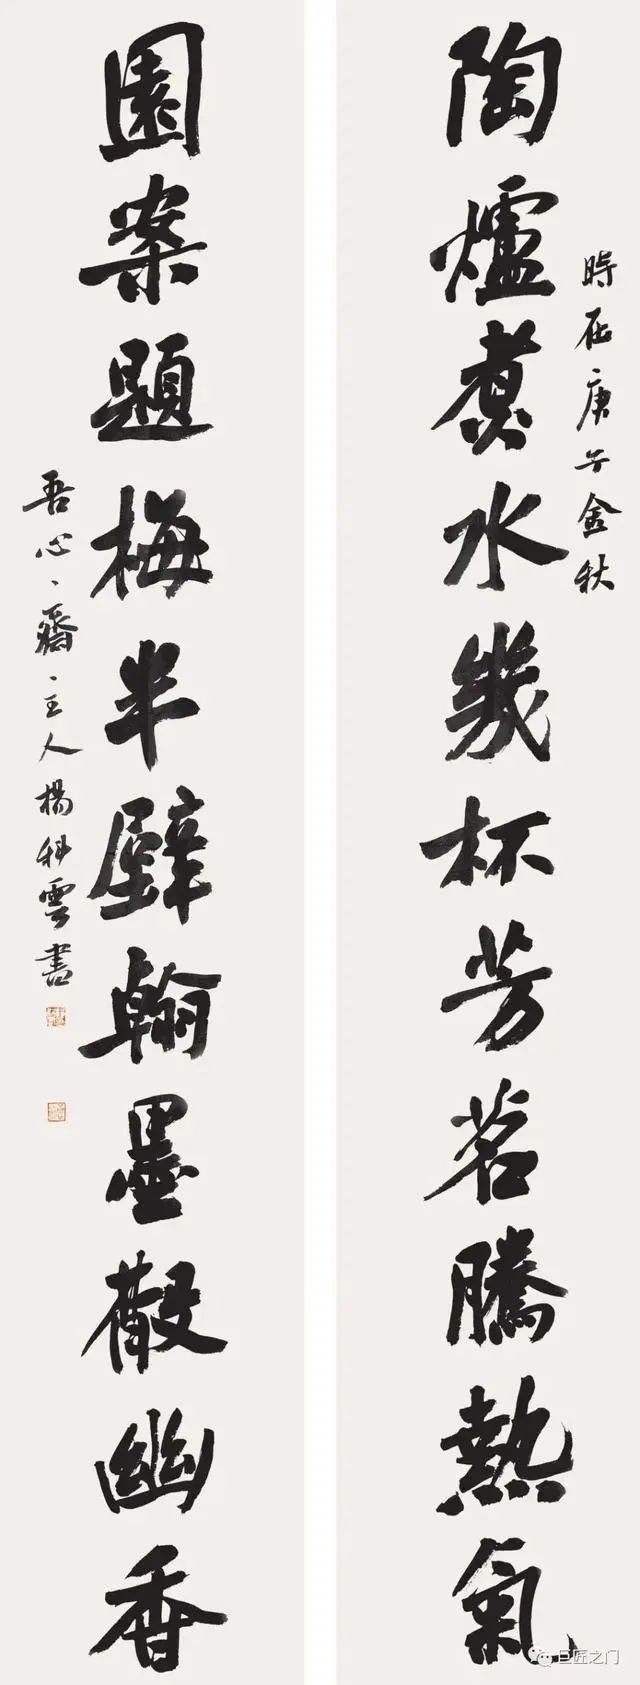 陶爐煑水幾杯芳茗騰熱氣
時在庚子金秋
園案題梅半壁翰墨散幽香
吾心齋主人楊科雲書
巨匠之门